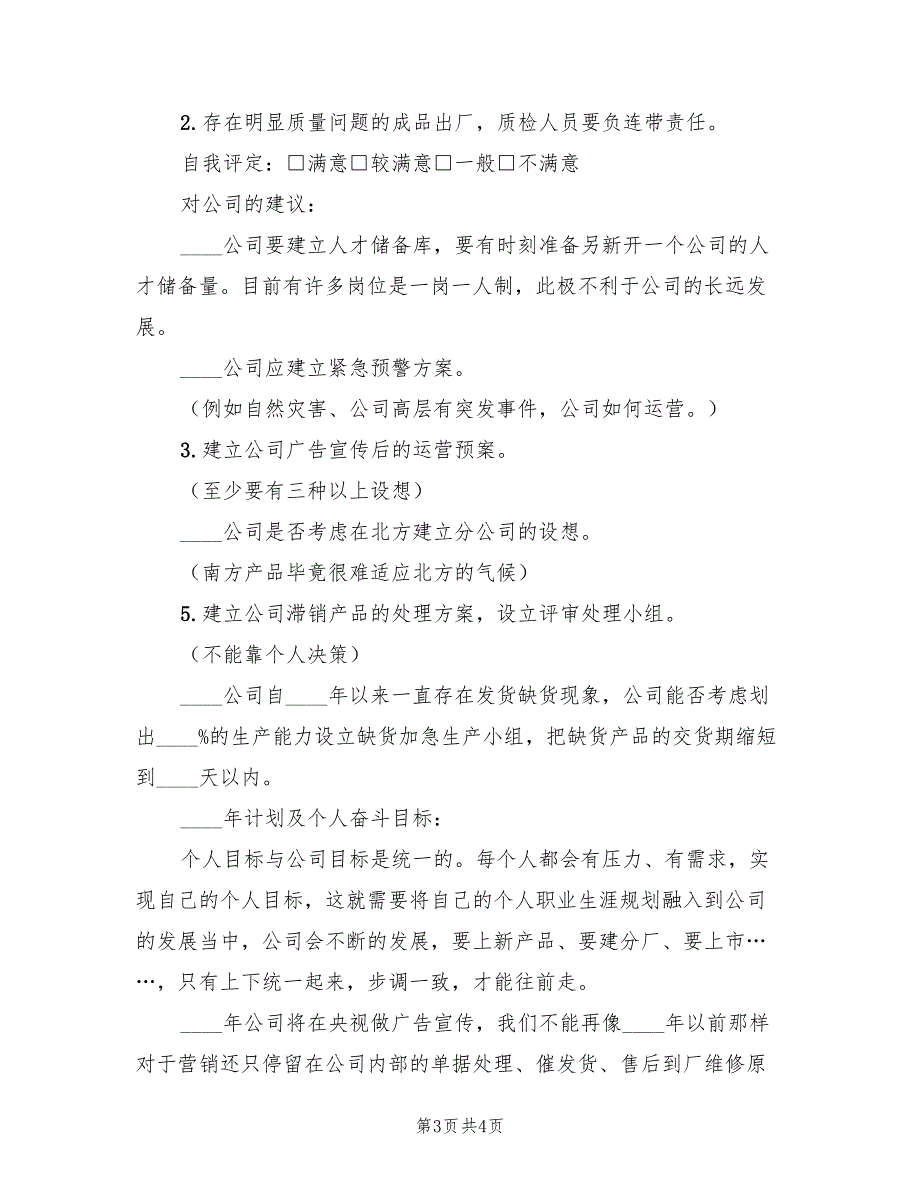 2. 存在明显质量问题的成品出厂，质检人员要负连带责任。
自我评定：□满意□较满意□一般□不满意
对公司的建议：
____公司要建立人才储备库，要有时刻准备另新开一个公司的人
才储备量。目前有许多岗位是一岗一人制，此极不利于公司的长远发
展。
____公司应建立紧急预警方案。
（例如自然灾害、公司高层有突发事件，公司如何运营。）
3. 建立公司广告宣传后的运营预案。
（至少要有三种以上设想）
____公司是否考虑在北方建立分公司的设想。
（南方产品毕竟很难适应北方的气候）
5. 建立公司滞销产品的处理方案，设立评审处理小组。
（不能靠个人决策）
____公司自____年以来一直存在发货缺货现象，公司能否考虑划
出____%的生产能力设立缺货加急生产小组，把缺货产品的交货期缩短
到____天以内。
____年计划及个人奋斗目标：
个人目标与公司目标是统一的。每个人都会有压力、有需求，实
现自己的个人目标，这就需要将自己的个人职业生涯规划融入到公司
的发展当中，公司会不断的发展，要上新产品、要建分厂、要上市…
…，只有上下统一起来，步调一致，才能往前走。
____年公司将在央视做广告宣传，我们不能再像____年以前那样
对于营销还只停留在公司内部的单据处理、催发货、售后到厂维修原
第3页共4页